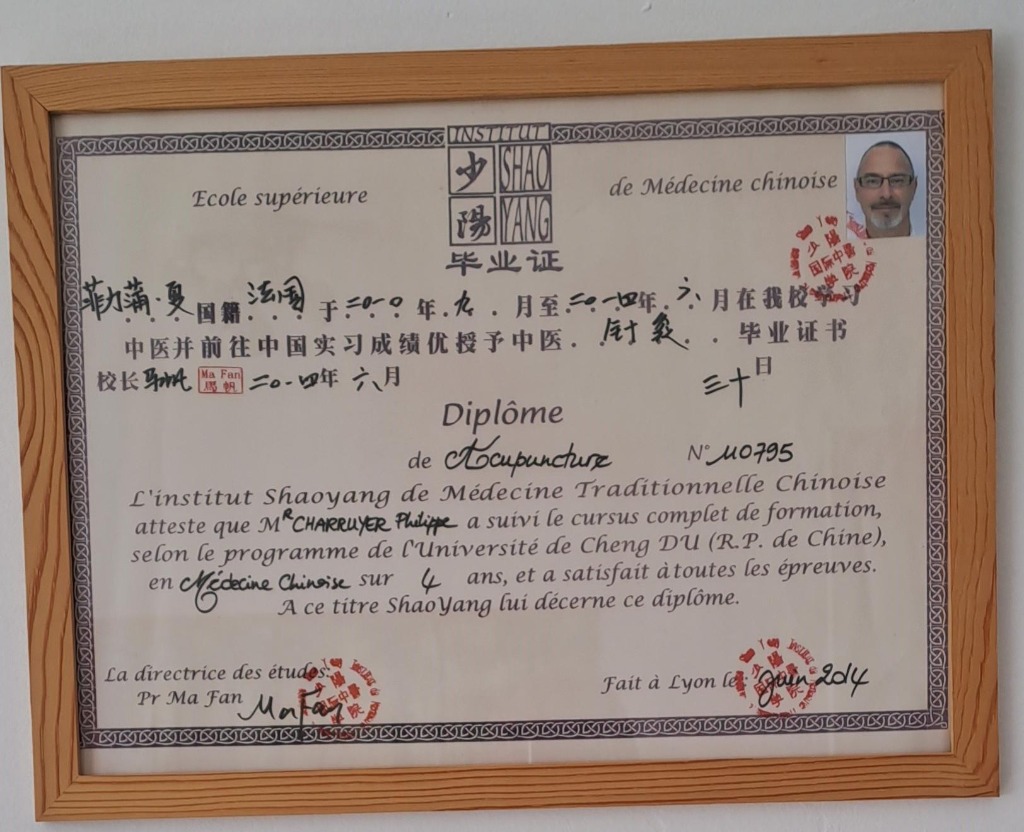 INSTITUT
少 SHAO
陽 YANG
Ecole supérieure de Médecine chinoise
毕业证
菲力蒲·夏 国籍 法国 于 二〇一〇 年 九 月至 二〇一四 年 六 月在我校学习
中医并前往中国实习成绩优授予中医 针灸 毕业证书
校长 马帆 Ma Fan 馬帆 二〇一四年 六月 三十日
Diplôme
de Acupuncture N° 110795
L'institut Shaoyang de Médecine Traditionnelle Chinoise
atteste que Mᴿ CHARRUYER Philippe a suivi le cursus complet de formation,
selon le programme de l'Université de Cheng DU (R.P. de Chine),
en Médecine Chinoise sur 4 ans, et a satisfait à toutes les épreuves.
A ce titre ShaoYang lui décerne ce diplôme.
La directrice des études:
Pr Ma Fan Ma Fan
Fait à Lyon le: Juin 2014
少陽
国际中醫
学院